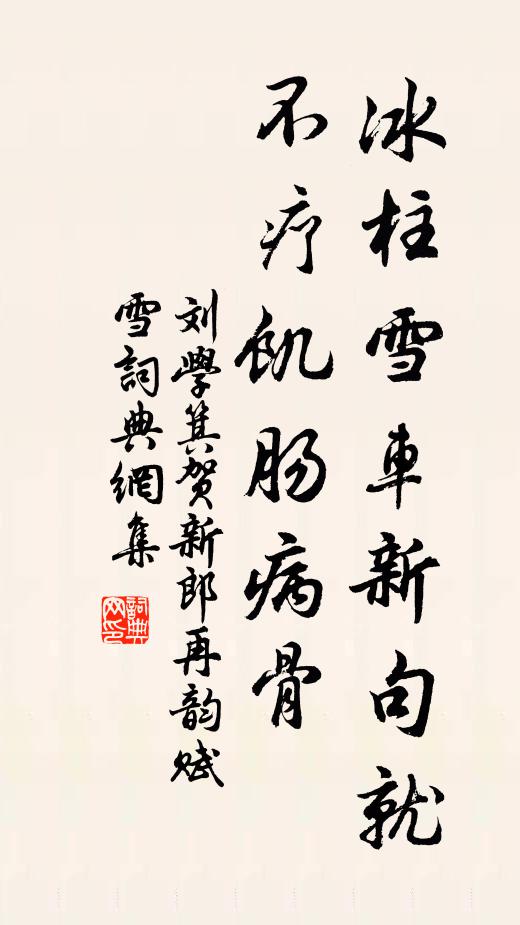 冰柱雪車新句就
不疗飢肠病骨
刘學箕贺新郎再韵赋
雪詞典網集
詞典网印